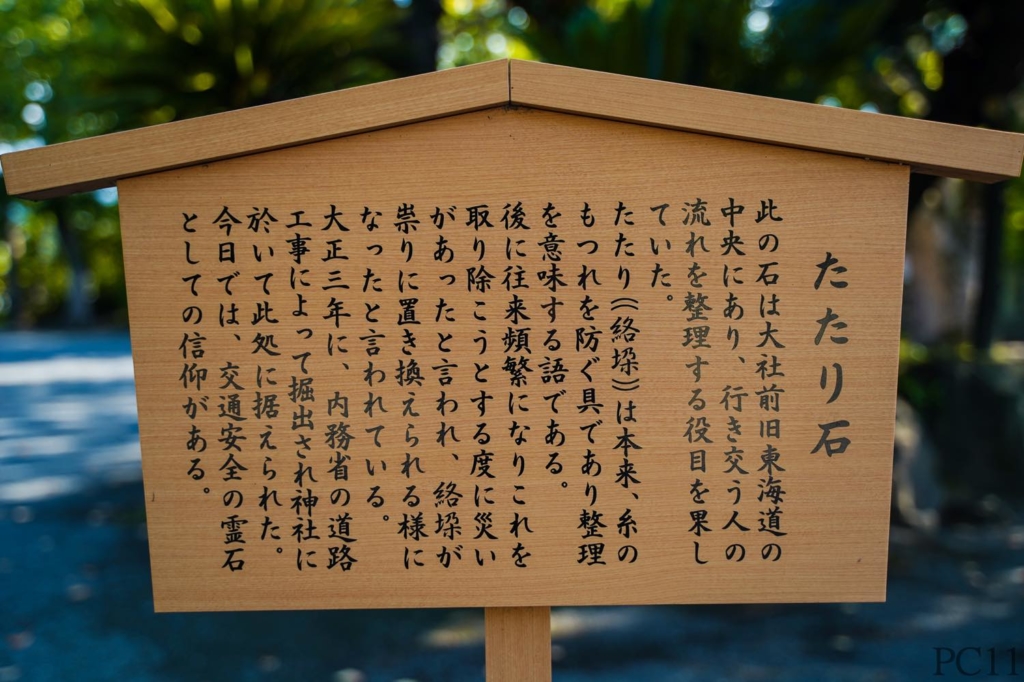 たたり石
此の石は大社前旧東海道の
中央にあり、行き交う人の
流れを整理する役目を果し
ていた。
たたり（絡垛）は本来、糸の
もつれを防ぐ具であり整理
を意味する語である。
後に往来頻繁になりこれを
取り除こうとする度に災い
があったと言われ、絡垛が
祟りに置き換えられる様に
なったと言われている。
大正三年に、内務省の道路
工事によって掘出され神社に
於いて此処に据えられた。
今日では、交通安全の霊石
としての信仰がある。
PC11